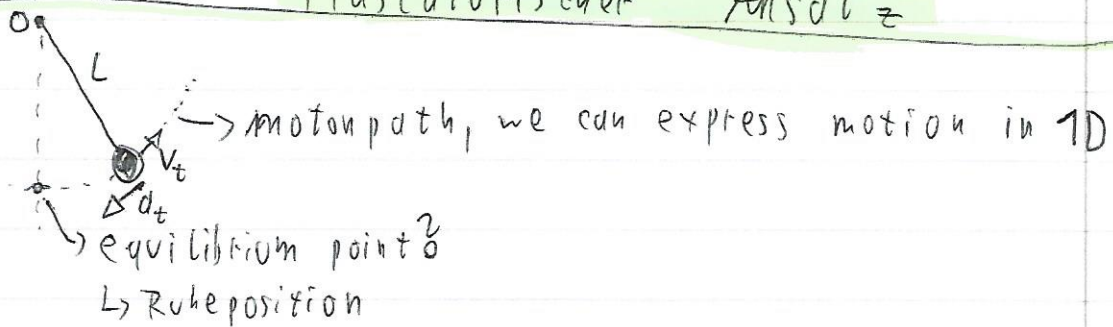 Ansatz
O
L
-> motonpath, we can express motion in 1D
v_t
a_t
-> equilibrium point?
L> Ruheposition